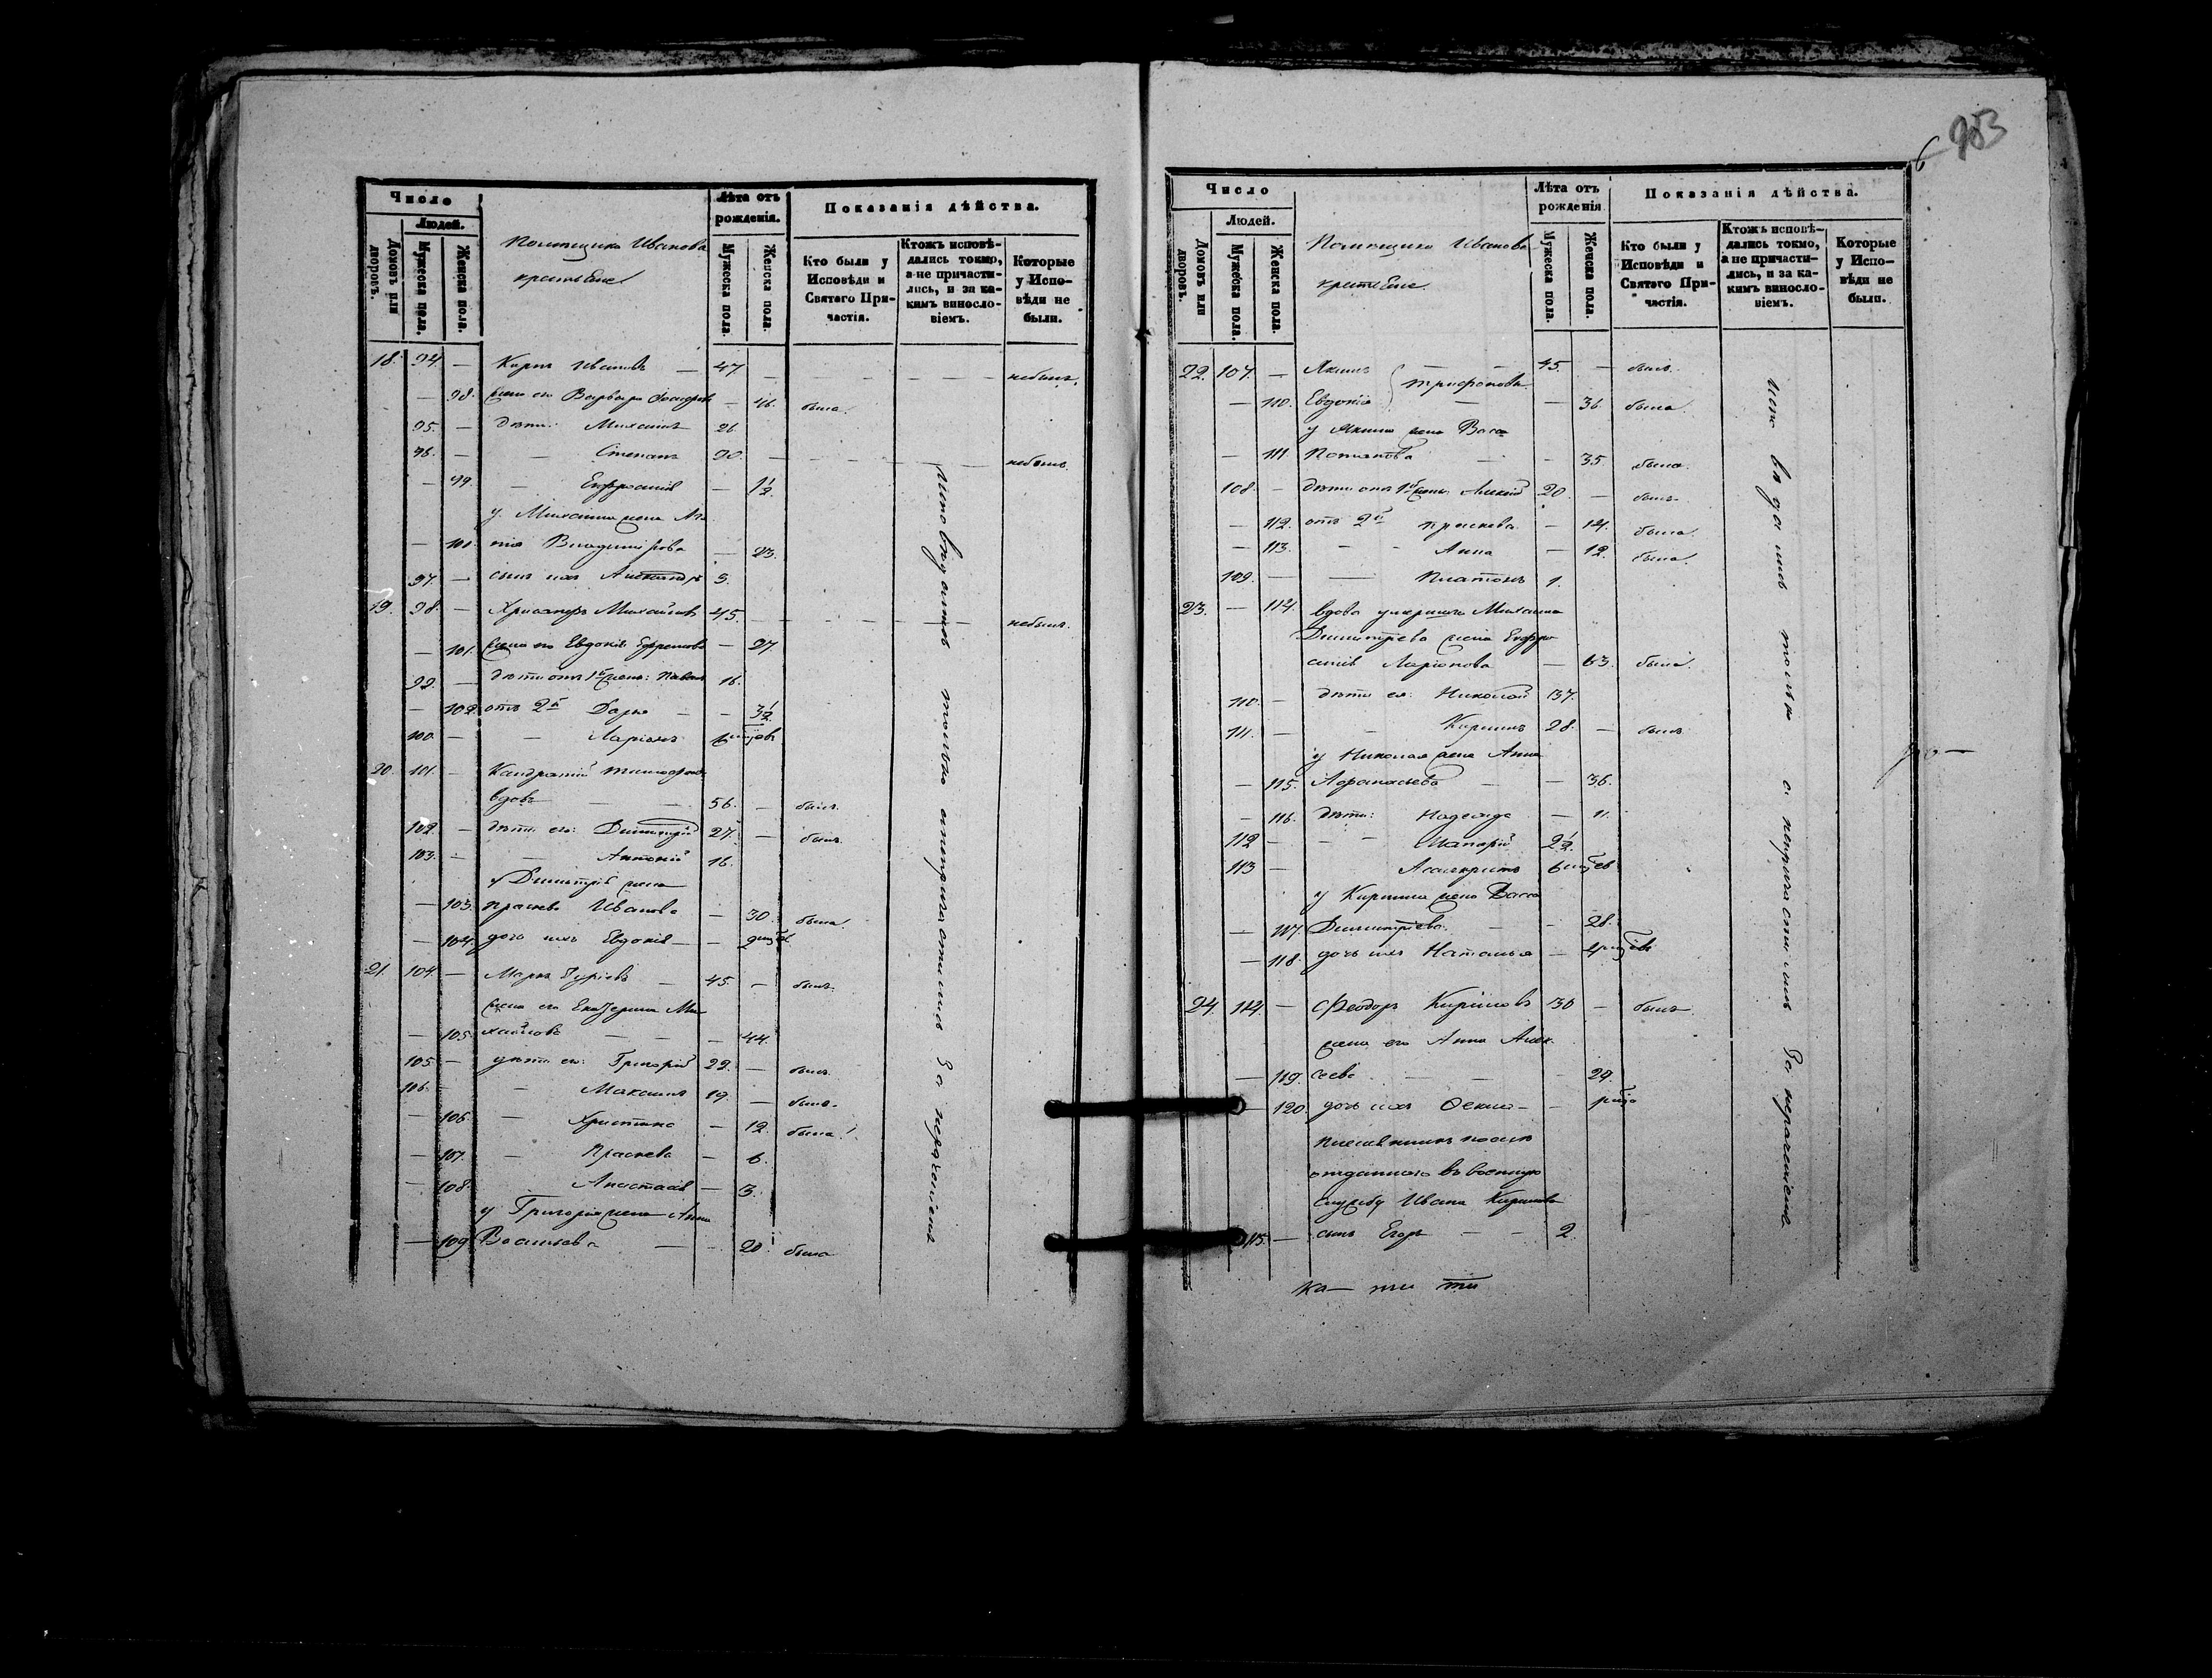 Число
Людей.
Домовъ или дворовъ.
Мужеска пола.
Женска пола.
Помѣщика Иванова
крестьяне
Лѣта отъ рожденія.
Мужеска пола.
Женска пола.
Показанія дѣйства.
Кто были у Исповѣди и Святаго Причастія.
Ктожъ исповѣ-
дались токмо,
а не причасти-
лись, и за ка-
кимъ виносло-
віемъ.
Которые
у Испо-
вѣди не
были.
18. 94. — Киръ Ивановъ — 47. — небылъ.
— 98. жена его Варвара — 46. была.
95. — дѣти: Михаилъ 26.
96. — — Степанъ 20. — небылъ.
— 99. — Евфросинія — 1½
у Михаила жена Ага
— 100. пія Владимірова — 23.
97. — сынъ ихъ Александръ 3.
19. 98. — Хрисанфъ Михайловъ 45. — небылъ.
— 101. жена его Евдокія Ефремова — 27
99. — дѣти отъ 1й жены: Павелъ 16.
— 102. отъ 2й Дарья — — 3½
100. — — Ларіонъ
20. 101. — Кандратій Тимофеевъ
вдовъ — — 56. — былъ.
102. — дѣти его: Димитрій 27. — былъ.
103. — — Антоній 16.
у Димитрія жена
— 103. Праскева Иванова — 30. была.
— 104. дочь ихъ Евдокія — —
21. 104. — Маркъ Гурьевъ — 45. — былъ.
жена его Екатерина Ми
— 105. хайлова — — — 44.
105. — дѣти его: Григорій 22. — былъ.
106. — — Максимъ 19. — былъ.
— 106. — Христина — 12. была.
— 107. — Праскева — 6.
— 108. Анастасія — 3.
у Григорія жена Анна
— 109. Васильева — — 20. была
исповѣдались только а не причастились за нерачѣніемъ
6 953
Число
Людей.
Домовъ или дворовъ.
Мужеска пола.
Женска пола.
Помѣщика Иванова
крестьяне
Лѣта отъ рожденія
Мужеска пола.
Женска пола.
Показанія дѣйства.
Кто были у Исповѣди и Святаго Причастія.
Ктожъ исповѣ-
дались токмо,
а не причасти-
лись, и за ка-
кимъ виносло-
віемъ.
Которые
у Испо-
вѣди не
были.
22. 107. — Якимъ — — 45. — былъ.
Трифоновы
— 110. Евдокія — — 36. была.
у Якима жена Васса
— 111. Потапова — — 35. была.
108. — дѣти отъ 1й жены: Алексій 20. — былъ.
— 112. отъ 2й Праскева — 14. была.
— 113. — — Анна — 12. была.
109. — — Платонъ 1.
23. — 114. вдова умершаго Михаила
Димитріева жена Евфро
синія Ларіонова — 63. была.
110. — дѣти ея: Николай 37.
111. — — Кирилъ 28. — былъ
у Николая жена Анна
— 115. Афанасьева — — 36.
— 116. дѣти: Надежда — 11.
112 — — Макарій 2½.
113 — Асинкритъ
у Кирила жена Васса
— 117. Димитріева — — 28.
— 118. дочь ихъ Наталья —
24. 114. — Феодоръ Кириловъ 30 — былъ
жена его Анна Алек
— 119. сеева — — — 29.
— 120. дочь ихъ Фекла — —
племянникъ послѣ
отданнаго въ военную
службу Ивана Кирилова
115. — сынъ Егоръ — — 2.
исповѣдались только а непричастились за нерачѣніемъ